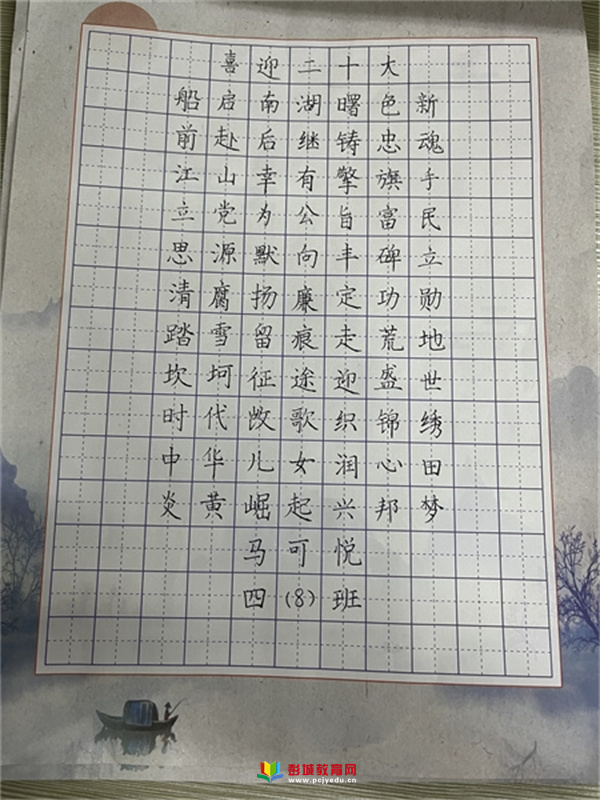 喜迎二十大
船启南湖曙色新
前赴后继铸忠魂
江山幸有擎旗手
立党为公旨富民
思源默向丰碑立
清腐扬廉定功勋
踏雪留痕走荒地
坎坷征途迎盛世
时代放歌织锦绣
中华儿女润心田
炎黄崛起兴邦梦
马可悦
四(8)班
彭城教育网
www.pcjyedu.cn